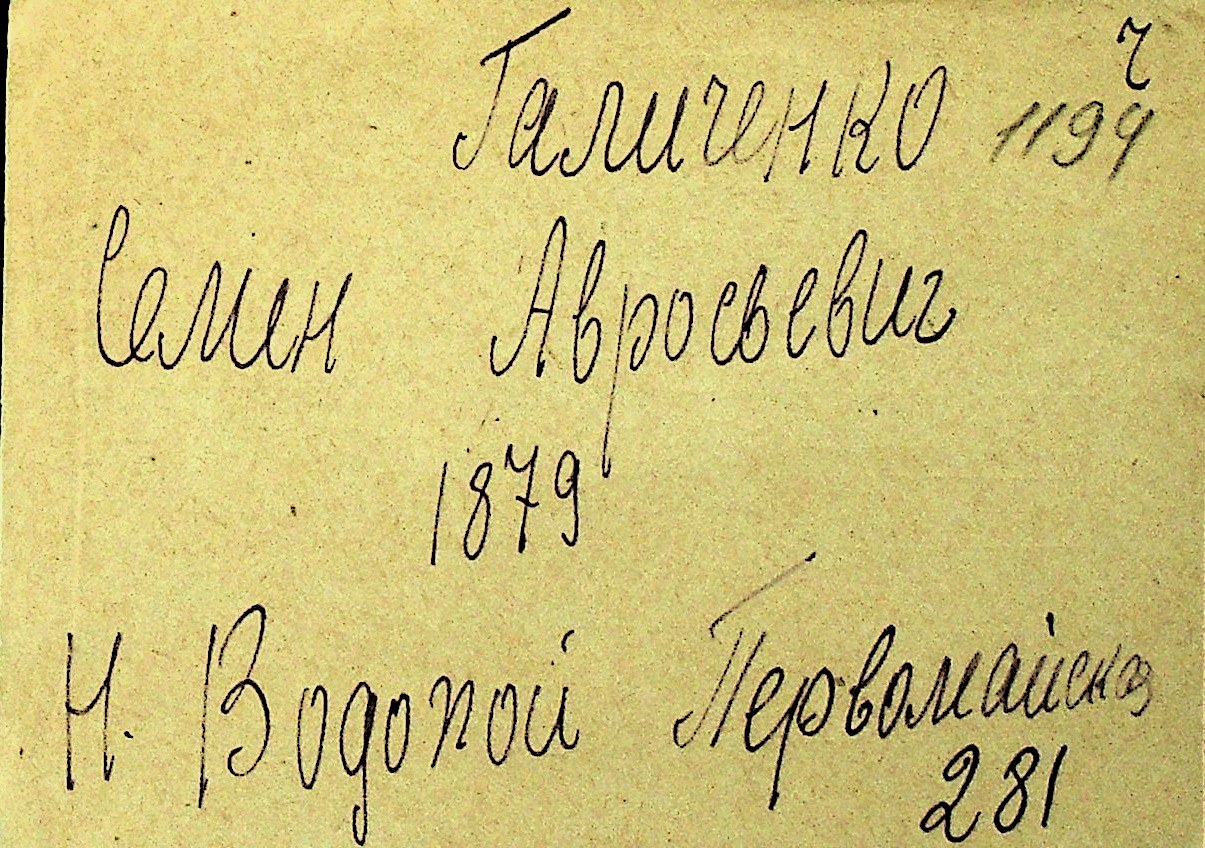 ч
Галиченко 1194
Семен Авросьевич
1879
Н. Водопой Первомайская
281